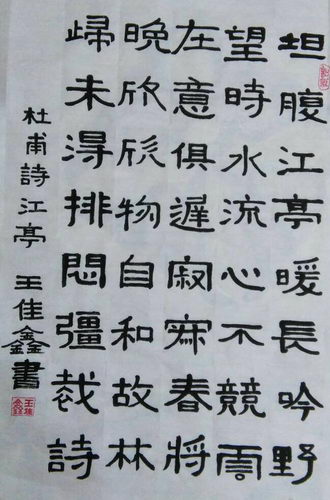 坦腹江亭暖長吟野
望時水流心不競雲
在意俱遲寂寂春將
晚欣欣物自和故林
歸未得排悶彊裁詩
杜甫詩江亭 王佳鑫書